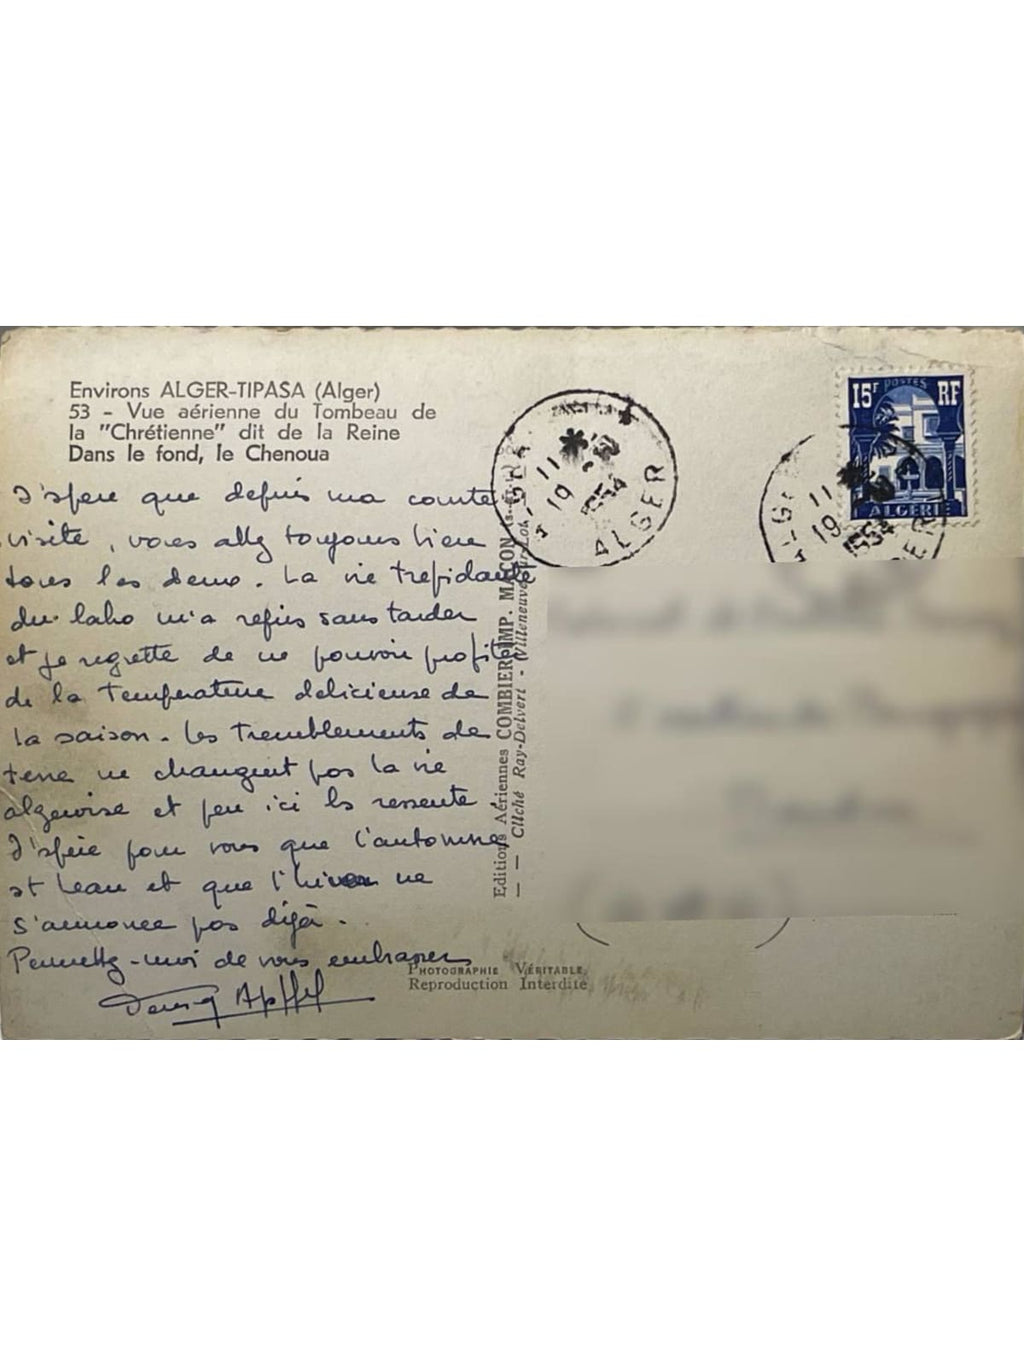 Environs ALGER-TIPASA (Alger)
53 - Vue aérienne du Tombeau de
la "Chrétienne" dit de la Reine
Dans le fond, le Chenoua
J'espère que depuis ma courte
visite, vous allez toujours bien
tous les deux. La vie trépidante
du labo m'a repris sans tarder
et je regrette de ne pouvoir profiter
de la température délicieuse de
la saison. Les tremblements de
terre ne changent pas la vie
algéroise et peu ici les ressente.
J'espère pour vous que l'automne
est beau et que l'hiver ne
s'annonce pas déjà.
Permettez-moi de vous embrasser
Apffel
Editions Aériennes COMBIER IMP. MACON
Cliché Ray-Delvert - Villeneuve-sur-Lot
PHOTOGRAPHIE VÉRITABLE
Reproduction Interdite
11
19
1954
ALGER
15F POSTES RF
ALGERIE
11
19
1954